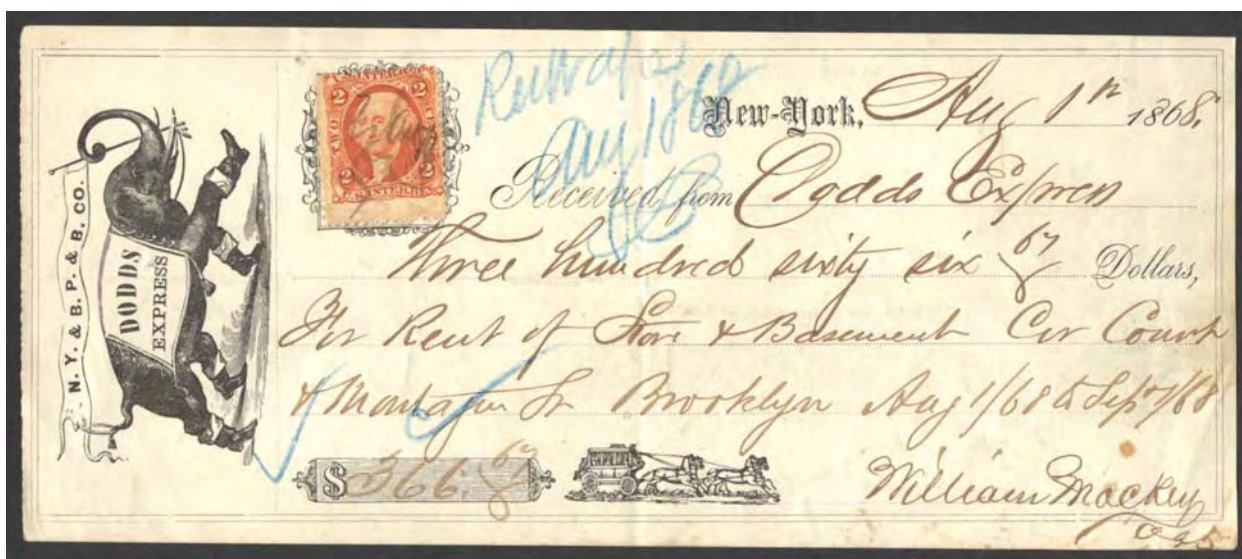 N. Y. & B. P. & B. CO.
DODDS
EXPRESS
2 2
2 2
Aug 1868
New-York, Aug 1st 1868.
Received from Dodds Express
Three hundred sixty six 67 Dollars,
For Rent of Store & Basement Cor Court
& Montague St Brooklyn Aug 1/68 to Sept 1/68
$366.67
EXPRESS
William Mackey